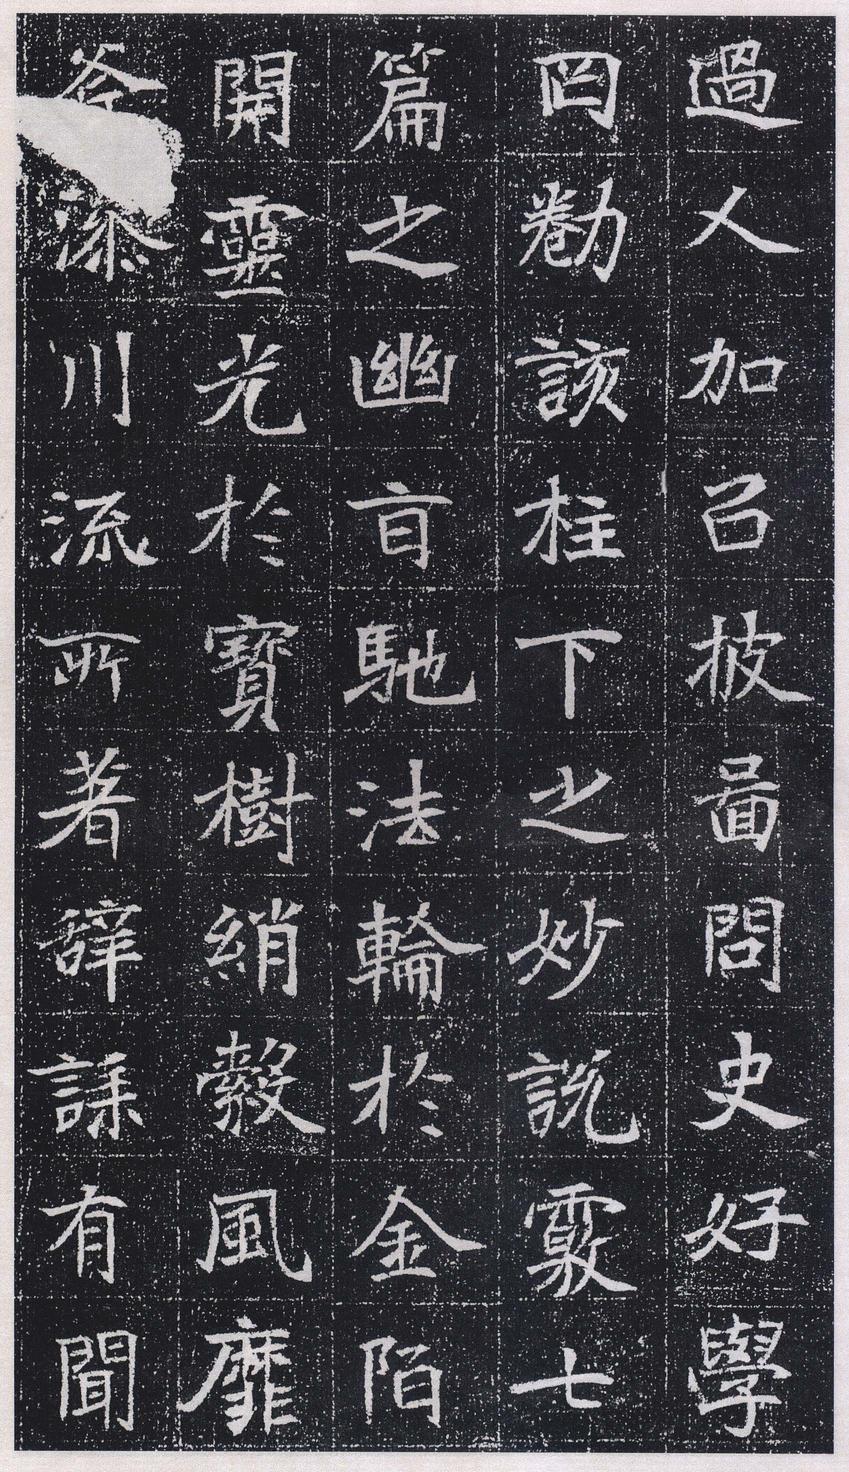 過人加㠯披啚問史好學
罔勌該柱下之妙說覈七
篇之幽旨馳法輪於金陌
開靈光於寶樹綃縠風靡
川流所著辭誄有聞